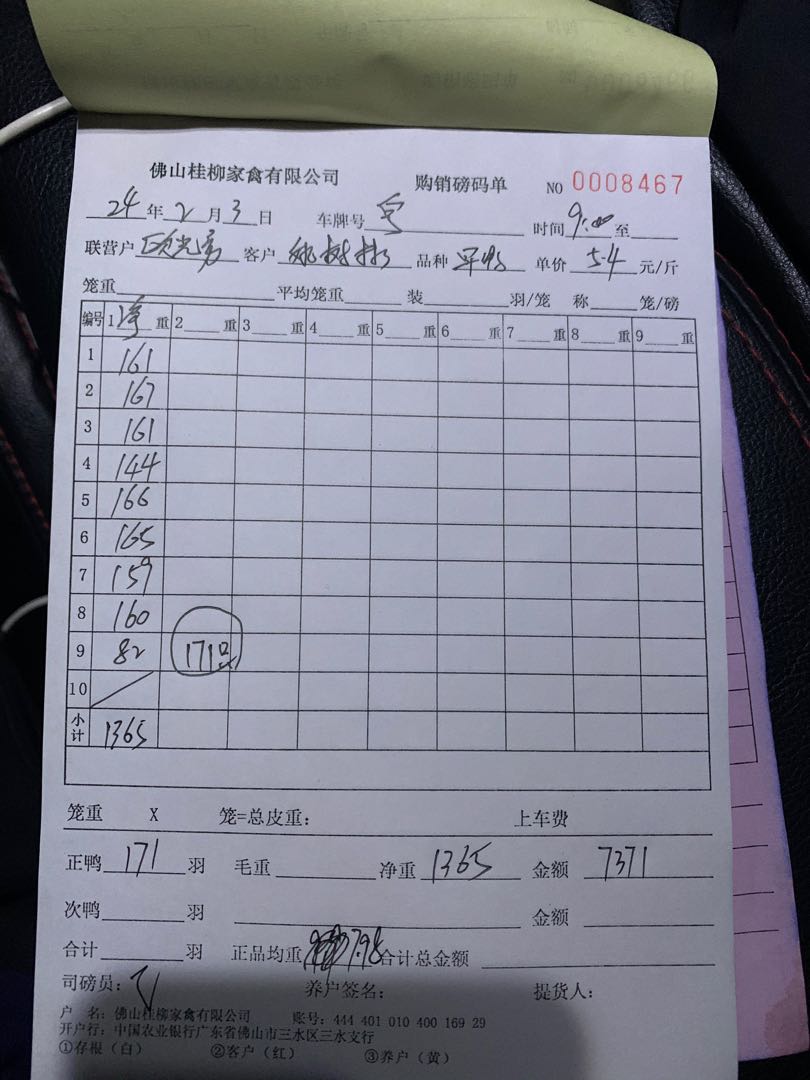 佛山桂柳家禽有限公司 购销磅码单 NO 0008467
24 年 2 月 3 日 车牌号 时间 9:00 至
联营户 客户 品种 单价 5.4 元/斤
笼重 平均笼重 装 羽/笼 称 笼/磅
编号 1 净 重 2 重 3 重 4 重 5 重 6 重 7 重 8 重 9 重
1 161
2 167
3 161
4 144
5 166
6 165
7 159
8 160
9 82 171只
10
小计 1365
笼重 X 笼=总皮重: 上车费
正鸭 171 羽 毛重 净重 1365 金额 7371
次鸭 羽 金额
合计 羽 正品均重 7.98 合计总金额
司磅员: 养户签名: 提货人:
户 名: 佛山桂柳家禽有限公司 账号: 444 401 010 400 169 29
开户行: 中国农业银行广东省佛山市三水区三水支行
①存根(白) ②客户(红) ③养户(黄)